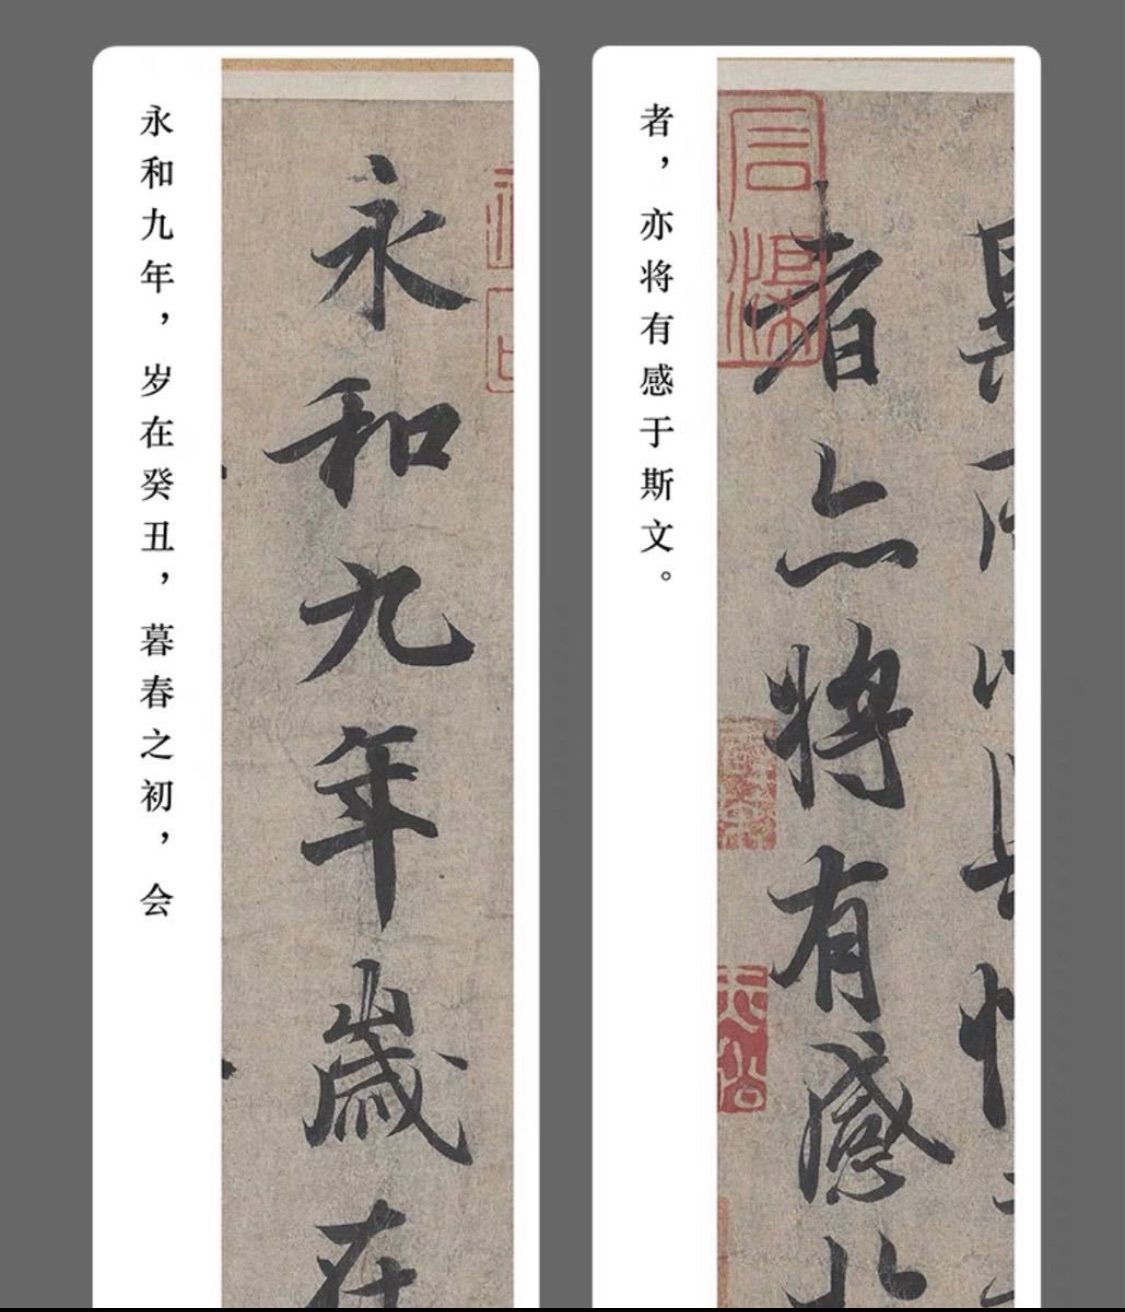 永和九年，岁在癸丑，暮春之初，会
永和九年歲在
者，亦将有感于斯文。
者亦將有感於